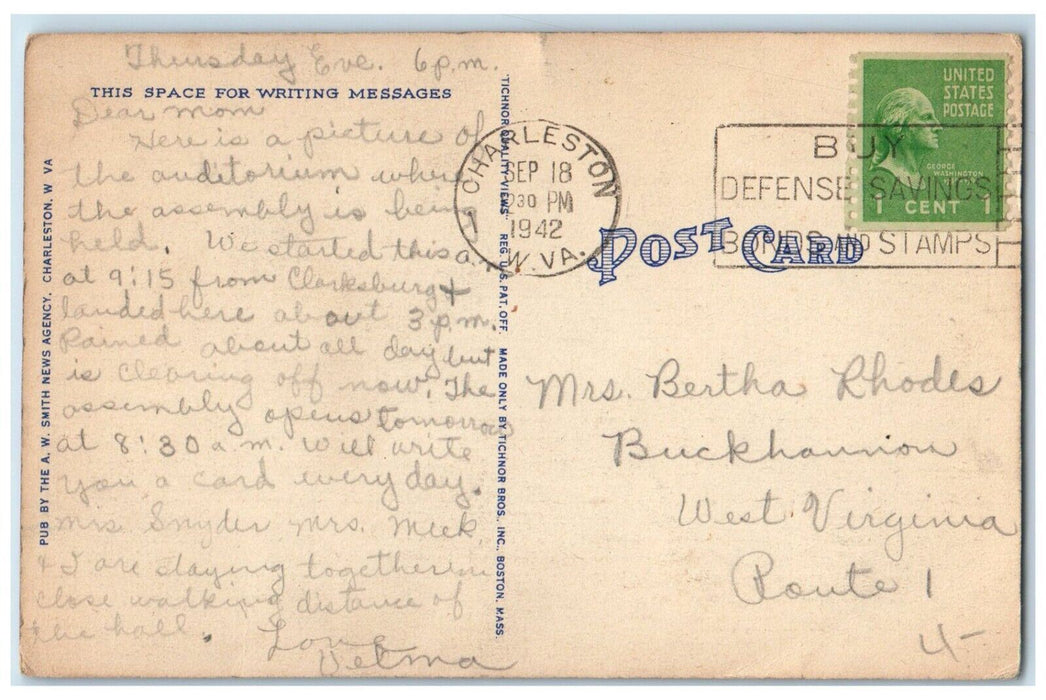 Thursday Eve. 6 p.m.
THIS SPACE FOR WRITING MESSAGES
Dear Mom
Here is a picture of
the auditorium where
the assembly is being
held. We started this a.m.
at 9:15 from Clarksburg &
landed here about 3 p.m.
Rained about all day but
is clearing off now. The
assembly opens tomorrow
at 8:30 a.m. Will write
you a card every day.
Mrs. Snyder Mrs. Meek
& I are staying together in
close walking distance of
the hall.
Love
Velma
PUB BY THE A. W. SMITH NEWS AGENCY, CHARLESTON, W VA
TICHNOR QUALITY VIEWS. REG. U.S. PAT. OFF. MADE ONLY BY TICHNOR BROS. INC., BOSTON, MASS.
CHARLESTON
SEP 18
230 PM
1942
W. VA.
BUY
DEFENSE SAVINGS
BONDS AND STAMPS
UNITED
STATES
POSTAGE
GEORGE
WASHINGTON
1 CENT 1
POST CARD
Mrs. Bertha Rhodes
Buckhannon
West Virginia
Route 1
4-